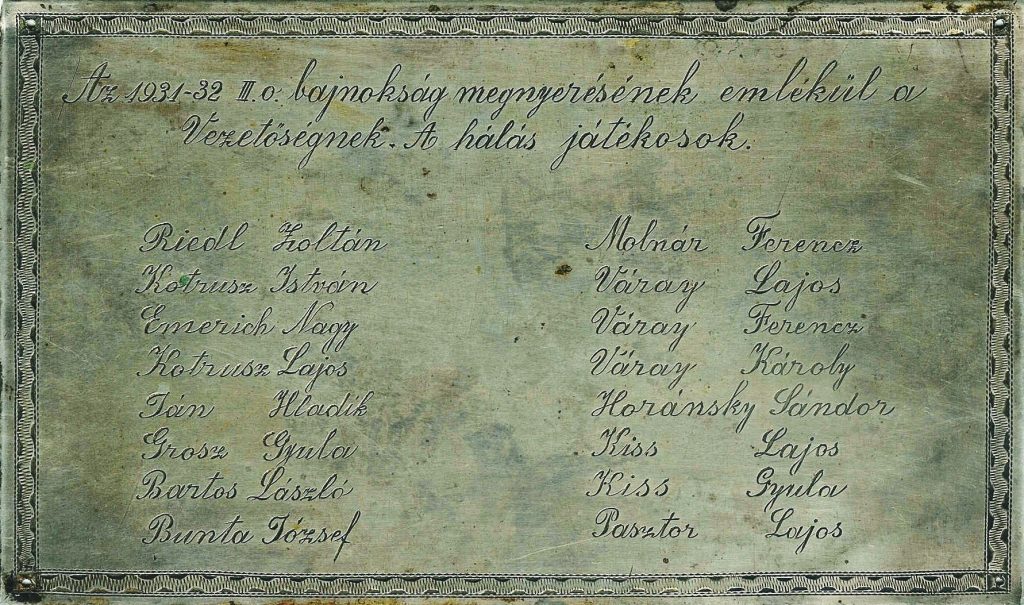 Az 1931-32 III. o. bajnokság megnyerésének emlékül a
Vezetőségnek. A hálás játékosok.
Riedl Zoltán
Kotrusz István
Emerich Nagy
Kotrusz Lajos
Ján Hladik
Grosz Gyula
Bartos László
Bunta József
Molnár Ferencz
Váray Lajos
Váray Ferencz
Váray Károly
Horánsky Sándor
Kiss Lajos
Kiss Gyula
Pasztor Lajos